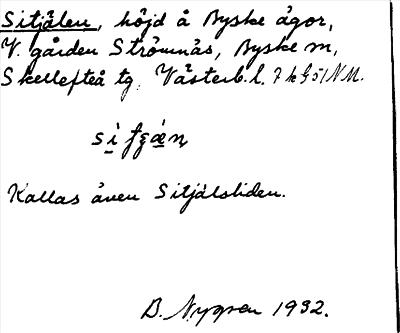 Sitjälen, höjd å Byske ägor,
V. gården Strömnäs, Byske sn,
Skellefteå tg, Västerb. l.
Kallas även Sitjälsliden.
B. Nygren 1932.